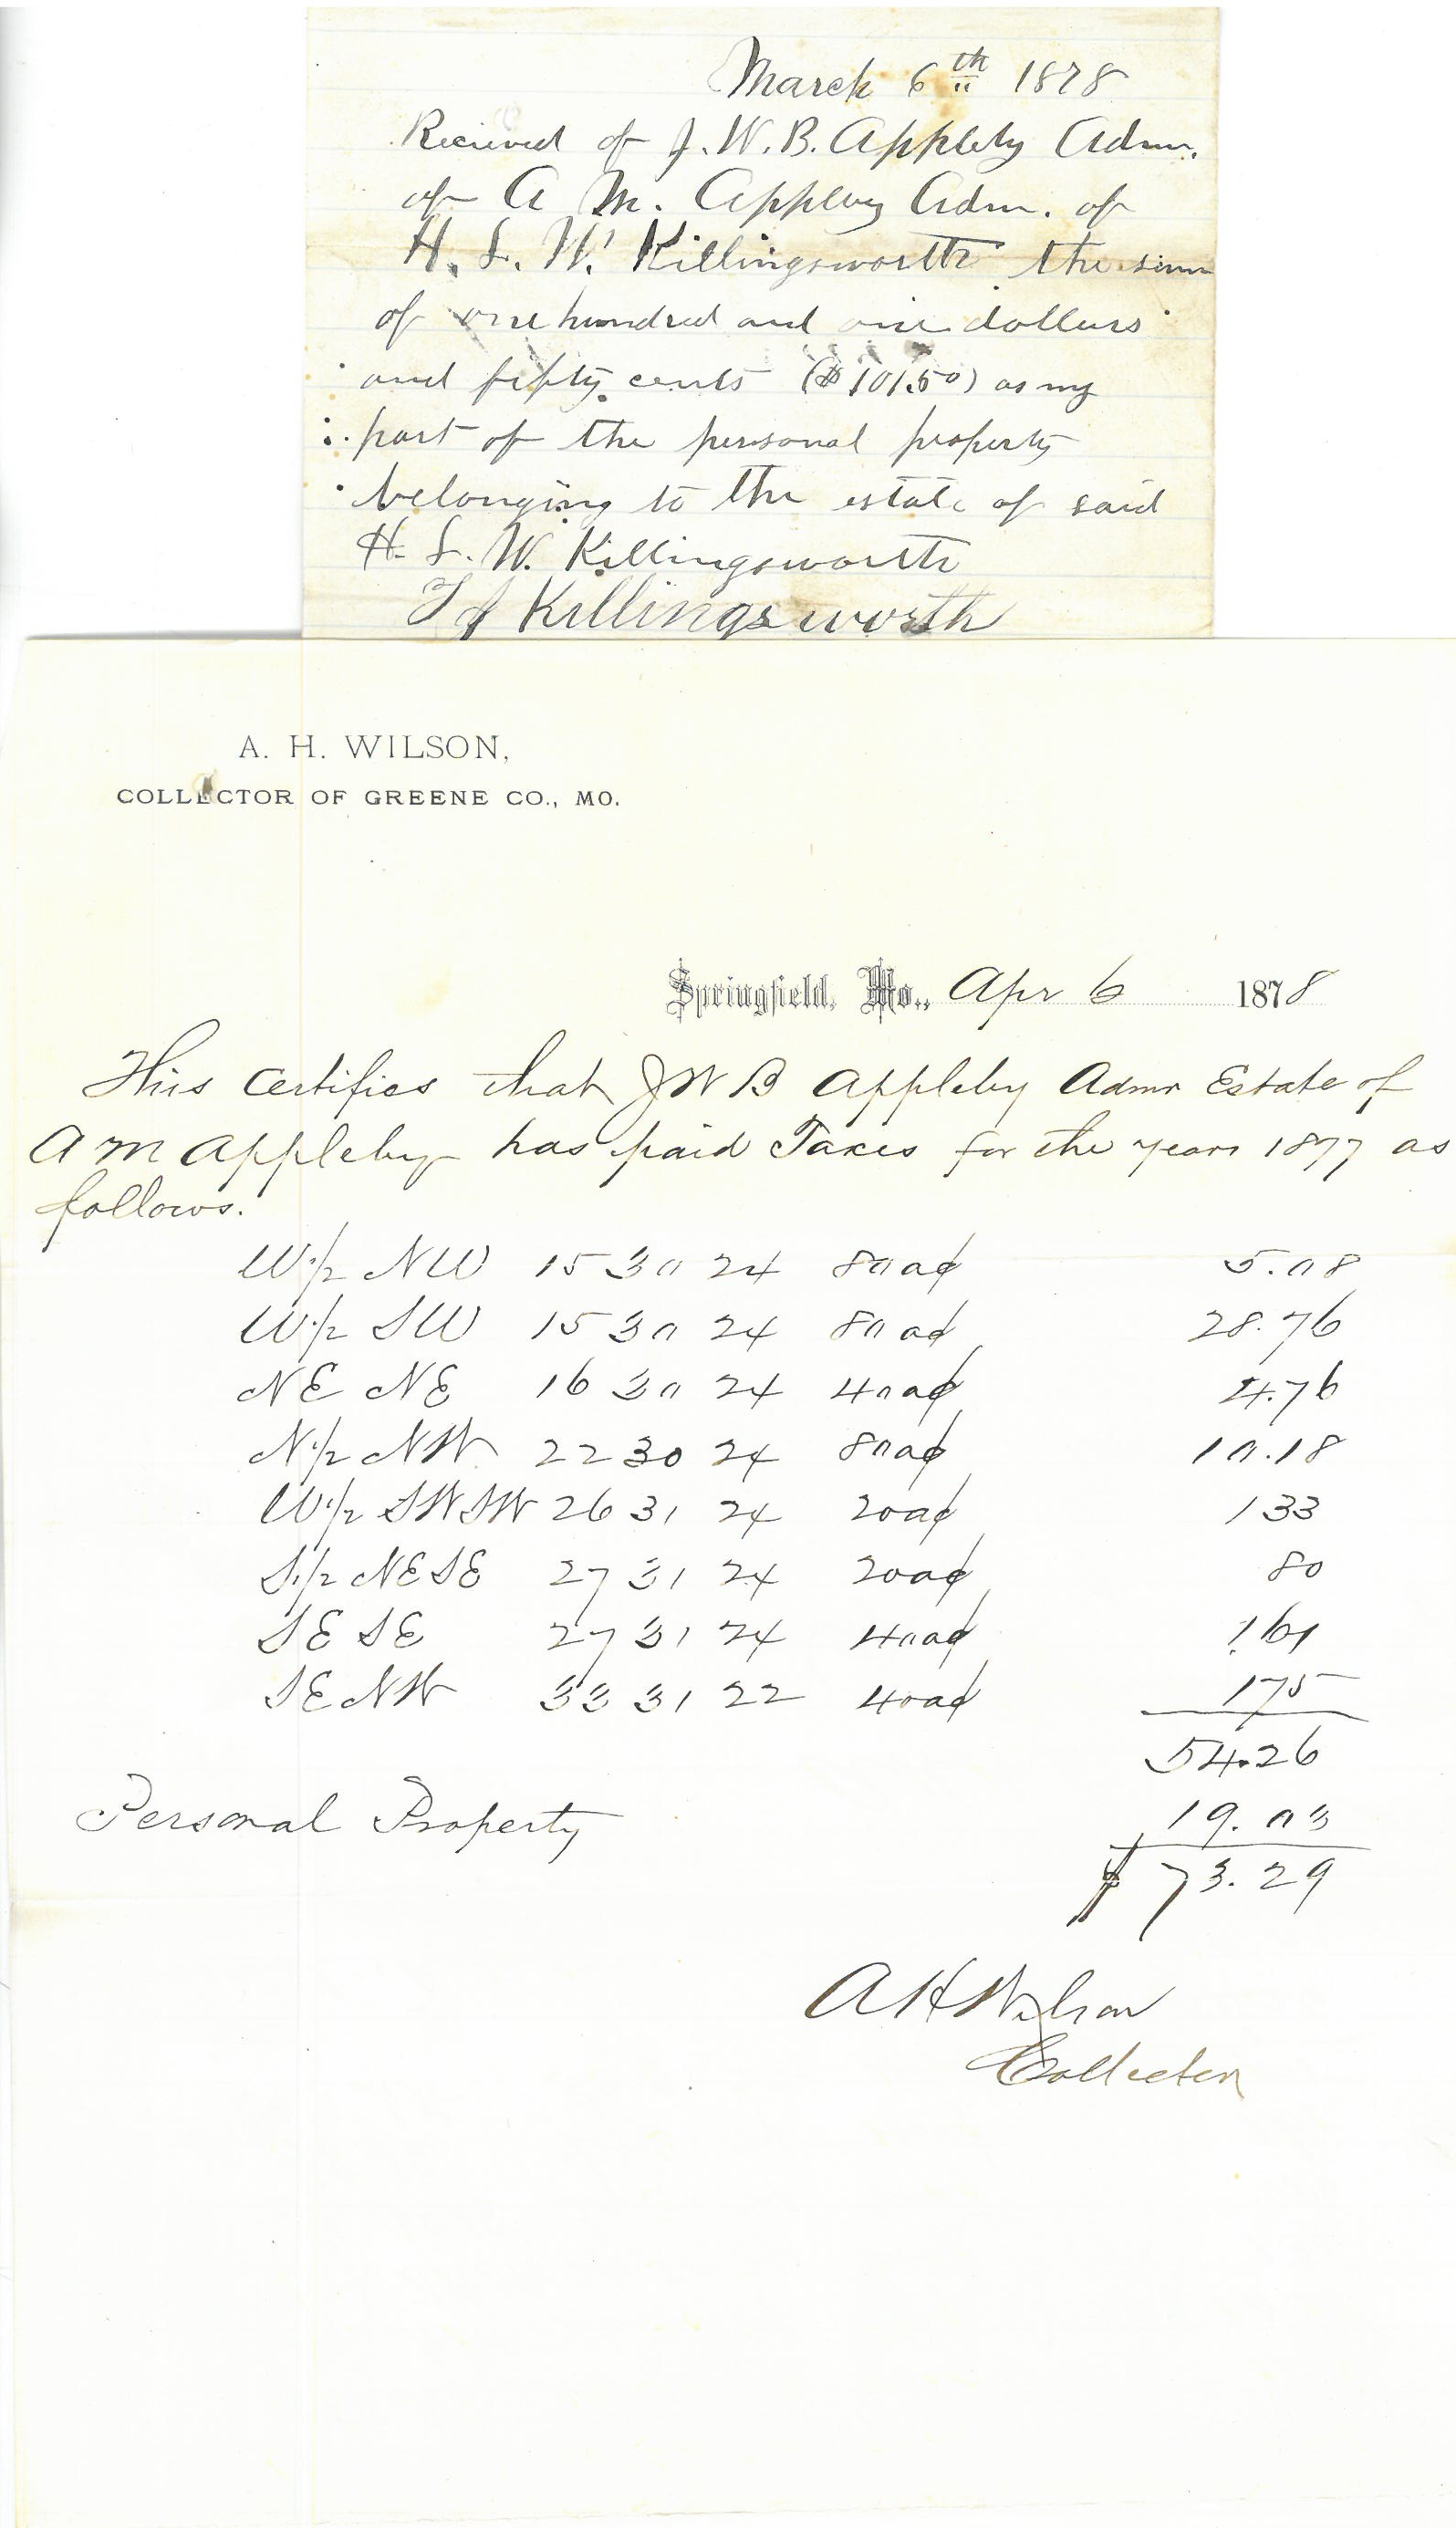 March 6th 1878
Recieved of J. W. B. Appleby Adm.
of A M. Appleby Adm. of
H. L. W. Killingsworth the sum
of one hundred and one dollars
and fifty cents ($101.50) as my
part of the personal property
belonging to the estate of said
H. L. W. Killingsworth
T J Killingsworth
A. H. WILSON,
COLLECTOR OF GREENE CO., MO.
Springfield, Mo., Apr 6 1878
This Certifies that J W B Appleby Admr Estate of
A M Appleby has paid Taxes for the years 1877 as
follows.
W 1/2 NW 15 30 24 80 ac 5.08
W 1/2 SW 15 30 24 80 ac 28.76
NE NE 16 30 24 40 ac 4.76
N 1/2 NW 22 30 24 80 ac 10.18
W 1/2 SW SW 26 31 24 20 ac 1 33
S 1/2 NE SE 27 31 24 20 ac 80
SE SE 27 31 24 40 ac 1.61
SE NW 33 31 22 40 ac 1 75
54.26
Personal Property 19.03
$ 73.29
A H Wilson
Collector